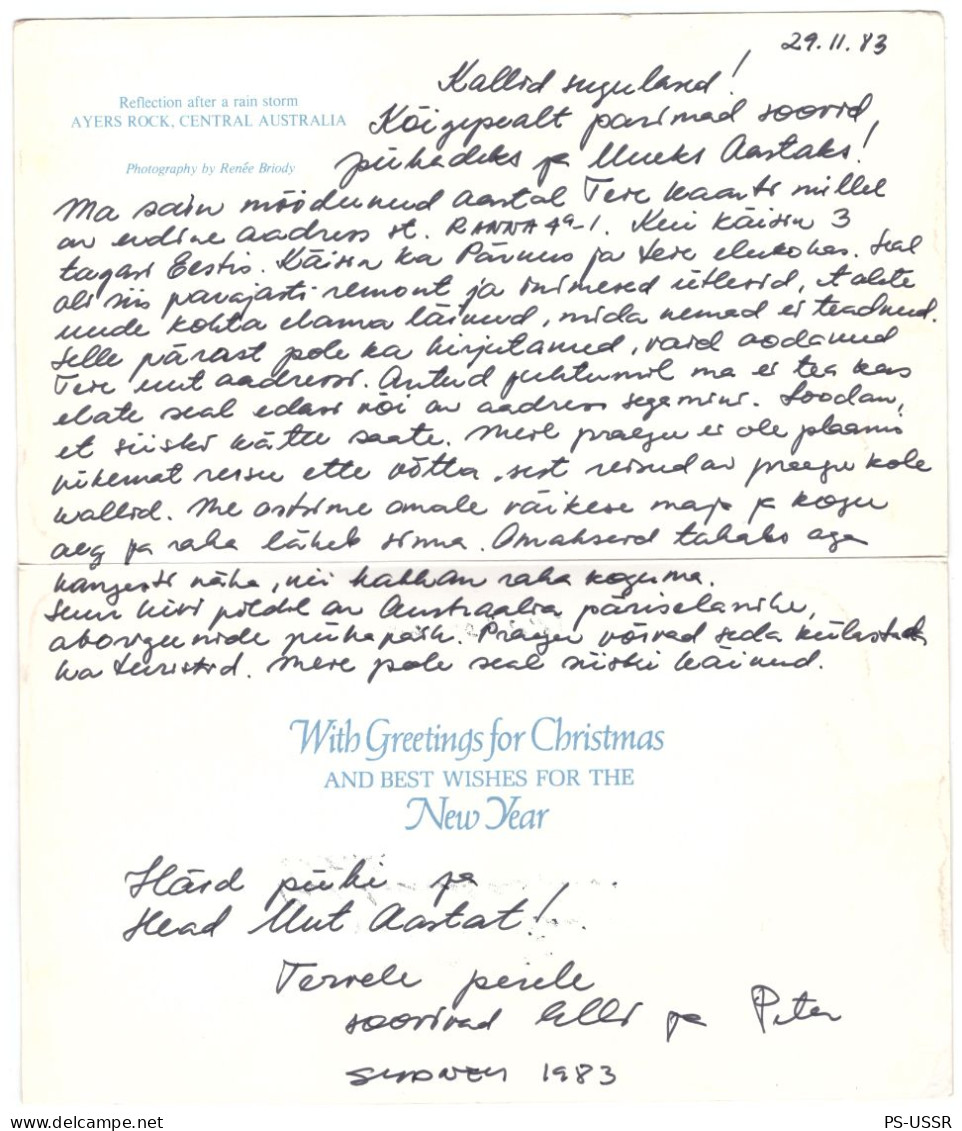 29.11.83
Kallid sugulased!
Reflection after a rain storm
AYERS ROCK, CENTRAL AUSTRALIA
Photography by Renée Briody
Kõigepealt parimad soovid
pühadeks ja Uueks Aastaks!
Ma sain möödunud aastal Teie kaardi millel
on endine aadress st. RANNA 4a-1. Kui käisin 3
tagasi Eestis. Käisin ka Pärnus ja teie elukohas. Seal
oli siis parajasti remont ja inimesed ütlesid, et olete
uude kohta elama läinud, mida nemad ei teadnud.
Selle pärast pole ka kirjutanud, vaid oodanud
Teie uut aadressi. Antud juhtumil ma ei tea kas
elate seal edasi või on aadress segamini. Loodan,
et siiski kätte saate. Meil praegu ei ole plaanis
pikemat reisu ette võtta, sest reisud on praegu kole
kallid. Me ostsime omale väikese maja ja kogu
aeg ja raha läheb sinna. Omakseid tahaks aga
kangesti näha, nii hakkan raha koguma.
Suur kivi pildil on Austraalia päriselanike,
aboriginide püha paik. Praegu võivad seda külastada
ka turistid. Meie pole seal siiski käinud.
With Greetings for Christmas
AND BEST WISHES FOR THE
New Year
Häid pühi ja
Head Uut Aastat!
Tervele perele
soovivad Elli ja Peter
SYDNEY 1983
PS-USSR